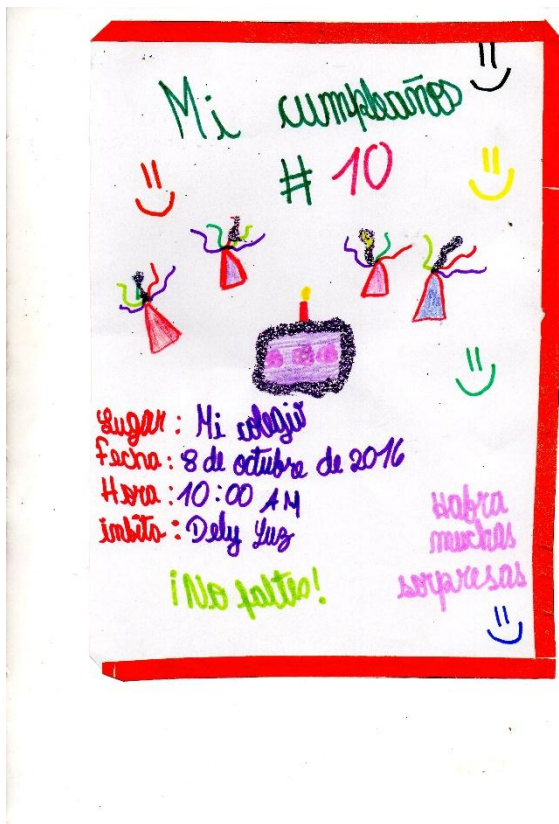 Mi cumpleaños
# 10
Lugar: Mi colegio
Fecha: 8 de octubre de 2016
Hora: 10:00 AM
inbita: Dely Luz
¡No faltes!
Habra
muchas
sorpresas